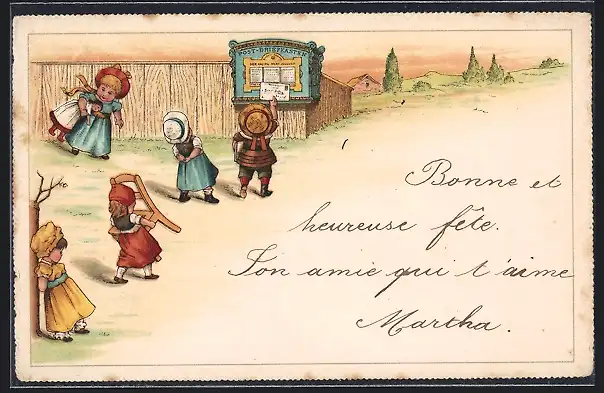 POST-BRIEFKASTEN
Bonne et
heureuse fête.
Ton amie qui t'aime
Martha.